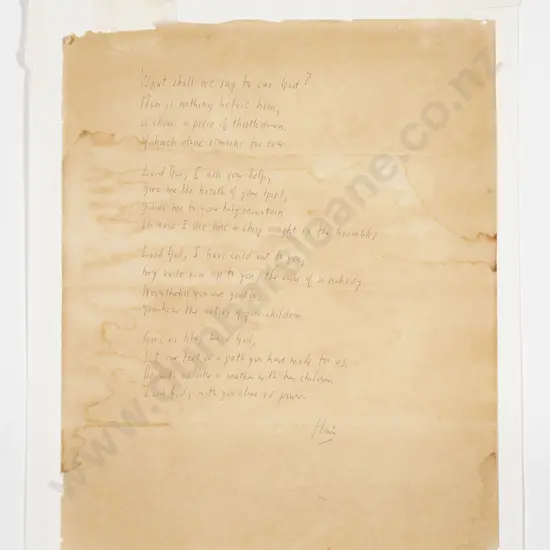 What shall we say to our God?
Man is nothing before him,
a stone, a piece of thistledown.
Yahweh alone remains for ever
Lord God, I ask your help,
Give me the breath of your Spirit,
Guide me to your holy mountain
In case I die like a sheep caught in the brambles
Lord God, I have cried out to you,
my voice rose up to you, the voice of a nobody
Nevertheless you are gentle,
You hear the voices of your children
Give us life, Lord God,
our feet on a path you have made for us,
us like a mother with her children
Lord God, with you alone is power.
www.dunbarsloane.co.nz